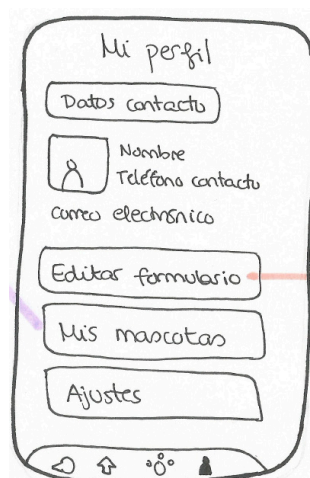 Mi perfil
Datos contacto
Nombre
Teléfono contacto
correo electrónico
Editar formulario
Mis mascotas
Ajustes